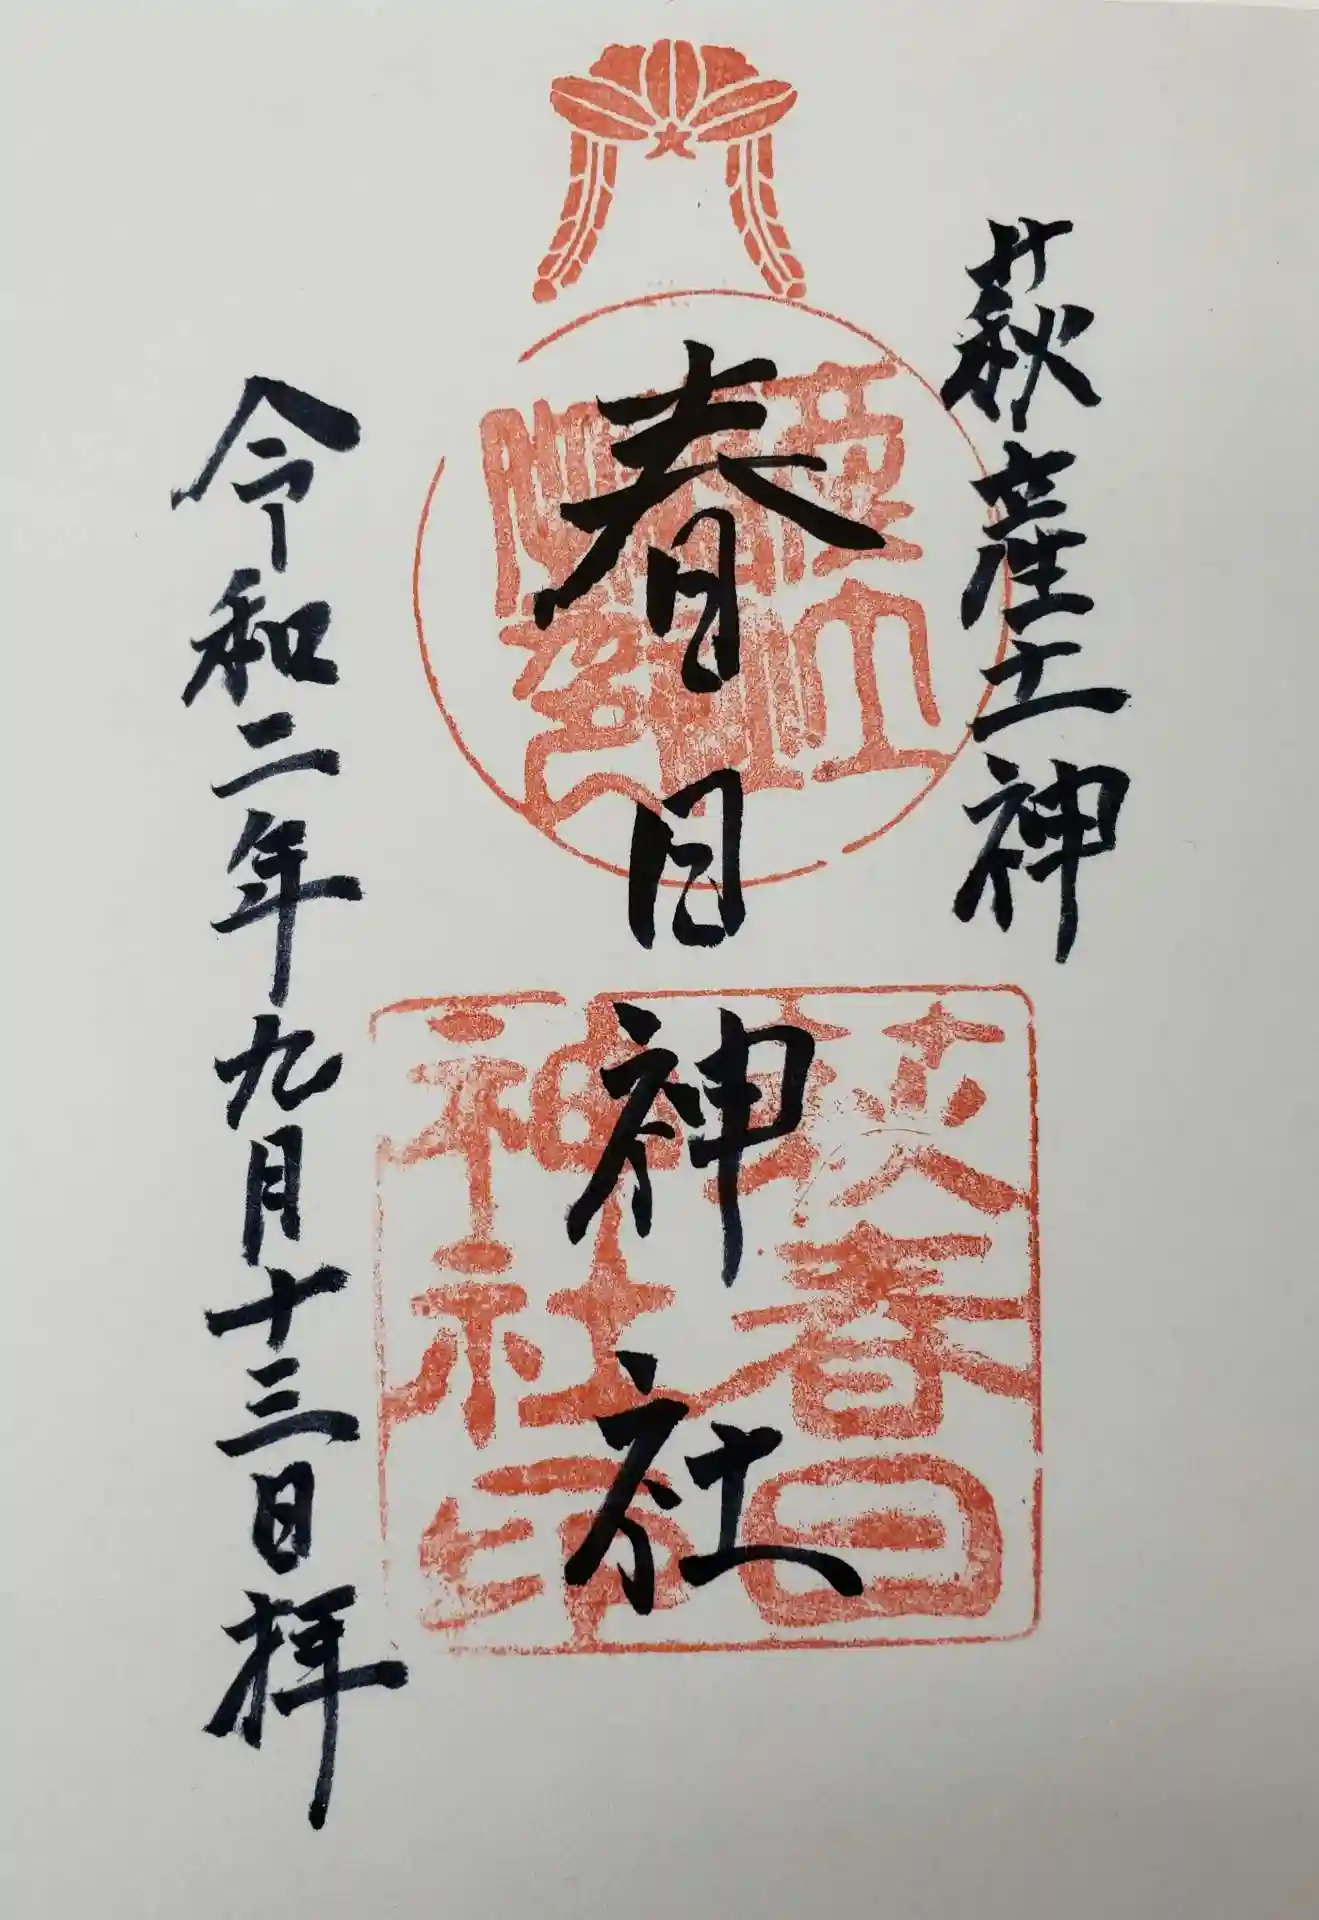 萩産土神
春日神社
令和二年九月十三日拝
萩春日
神社印